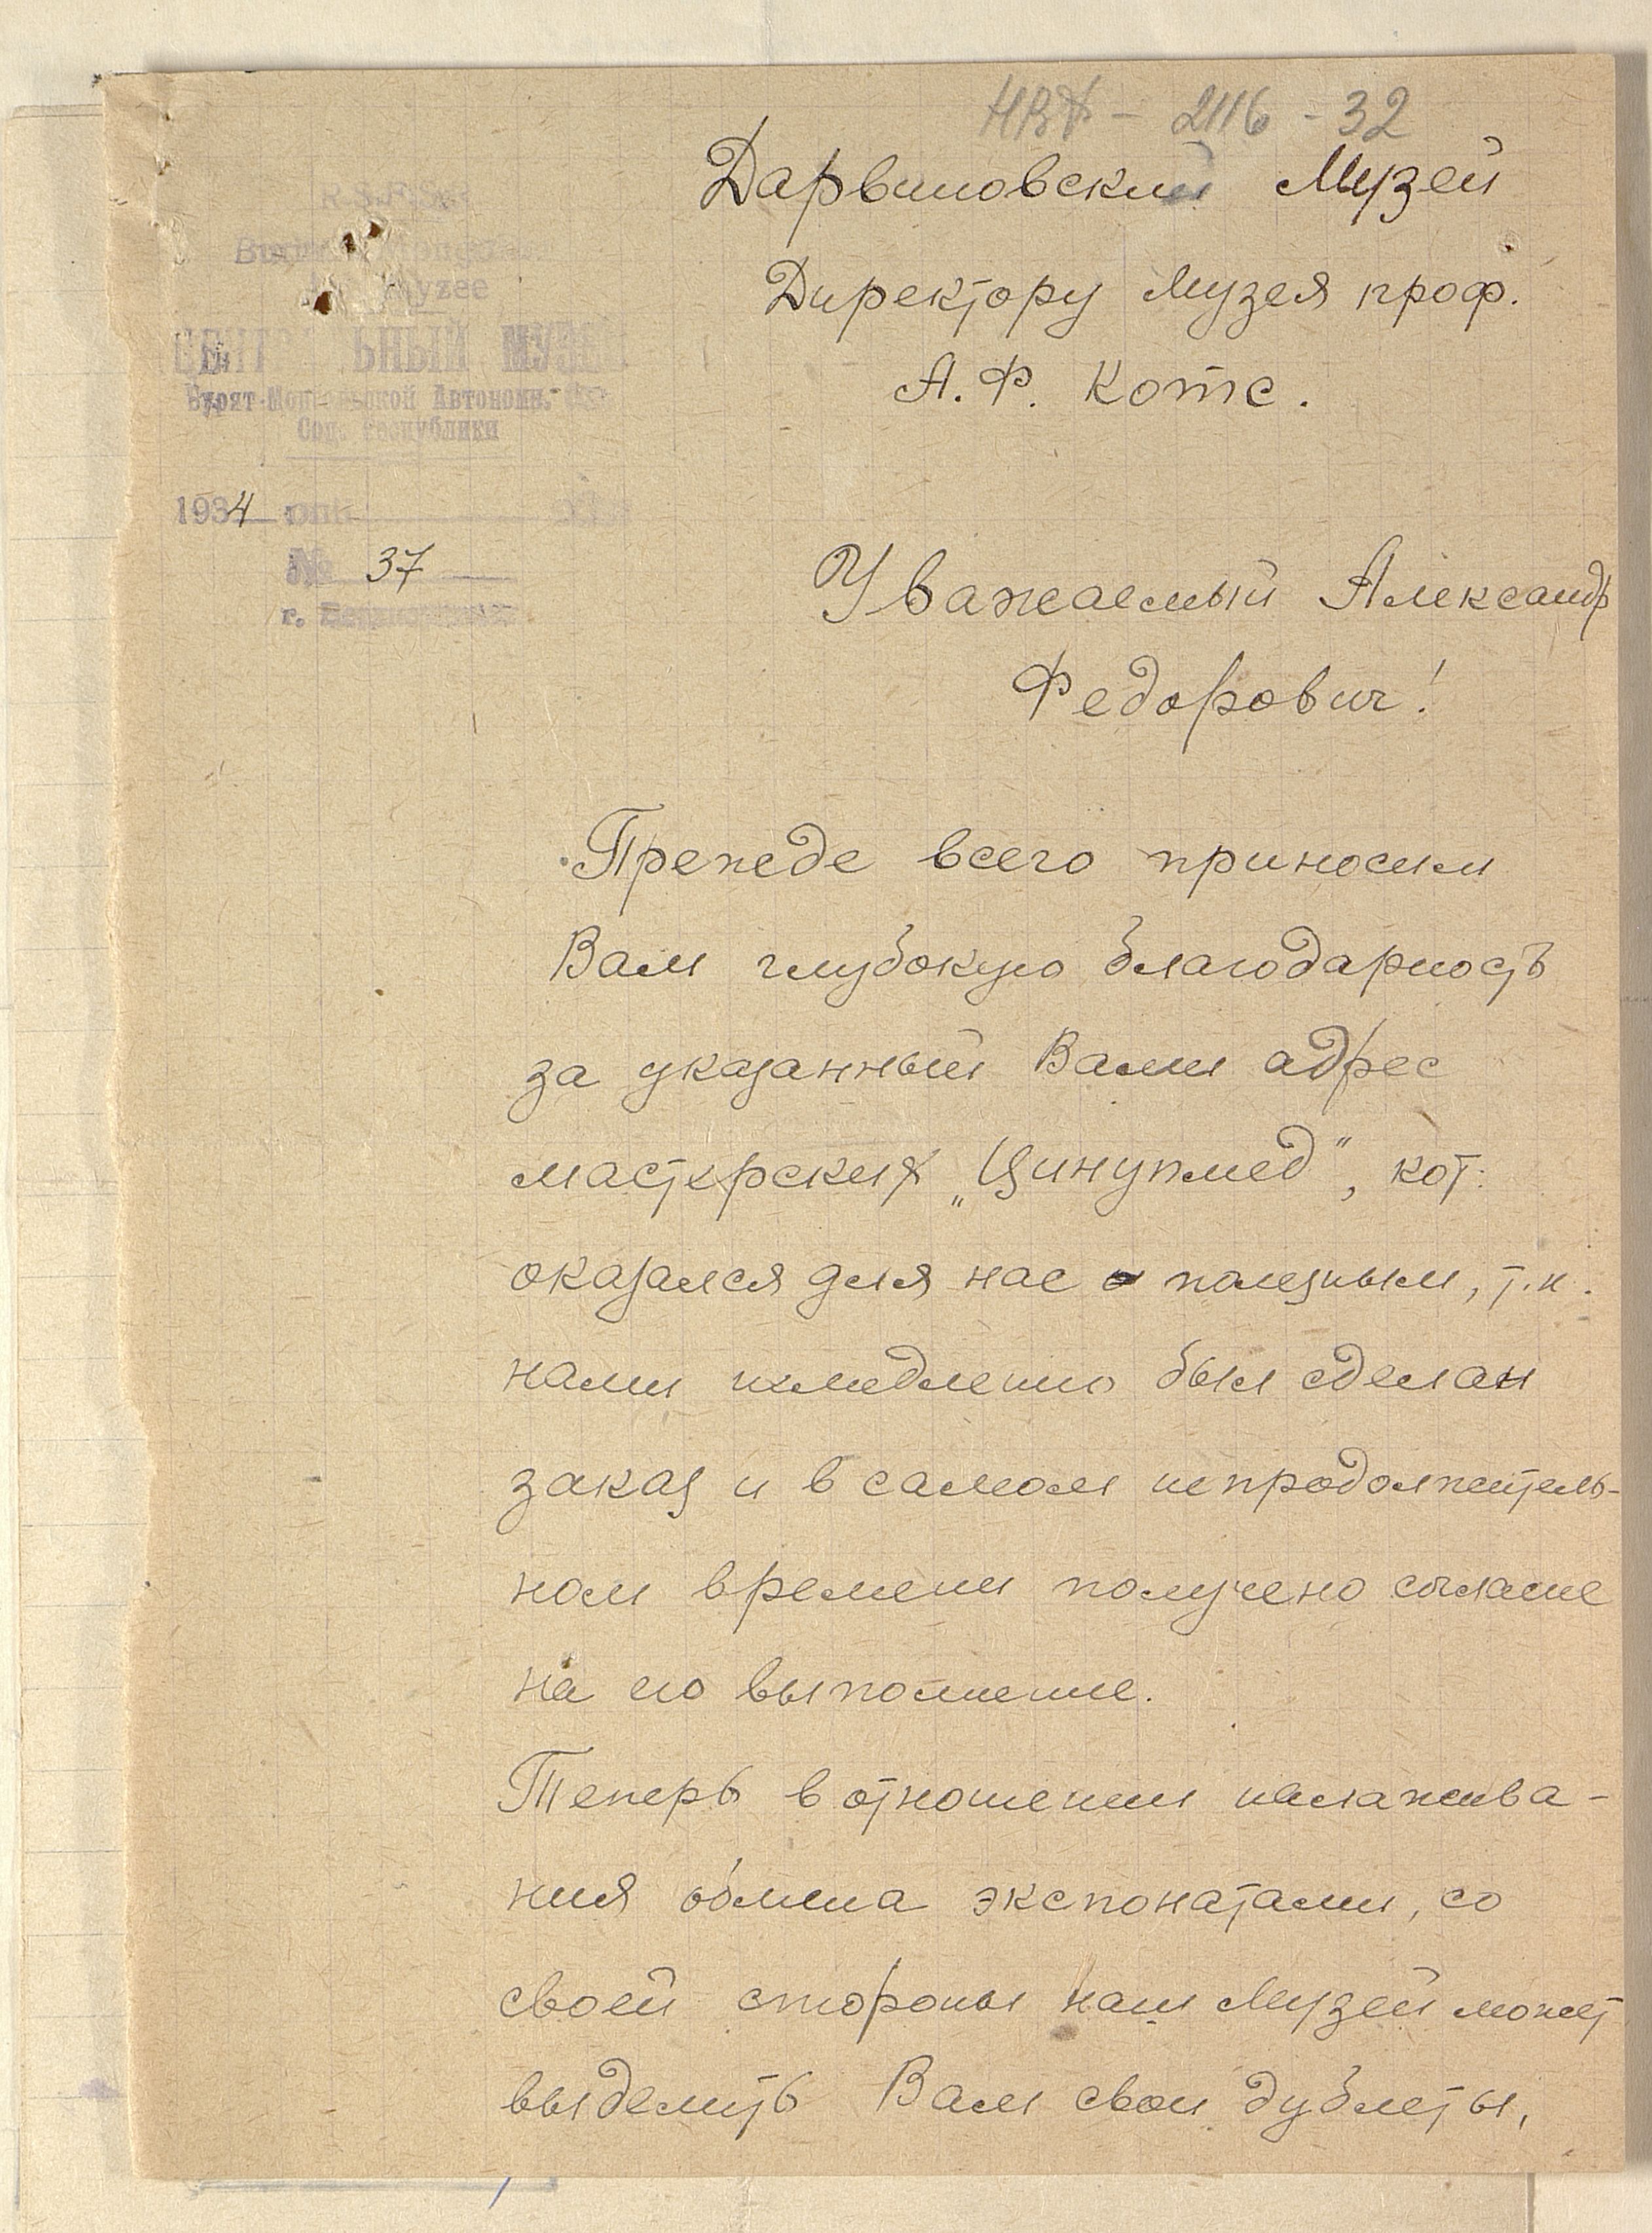 НВФ - 2116 - 32
Дарвиновский Музей
Директору Музея проф.
А. Ф. Котс.
R.S.F.S.R
Muzee
ЦЕНТРАЛЬНЫЙ МУЗЕЙ
Бурят-Монгольской Автономн.
Соц. Республики
1934
№ 37
г.
Уважаемый Александр
Федорович!
Прежде всего приносим
Вам глубокую благодарность
за указанный Вами адрес
мастерских „Цинупмед", кот.
оказался для нас полезным, т.к.
нами немедленно был сделан
заказ и в самом непродолжитель-
ном времени получено согласие
на его выполнение.
Теперь в отношении налажива-
ния обмена экспонатами, со
своей стороны наш Музей может
выделить Вам свои дублеты,